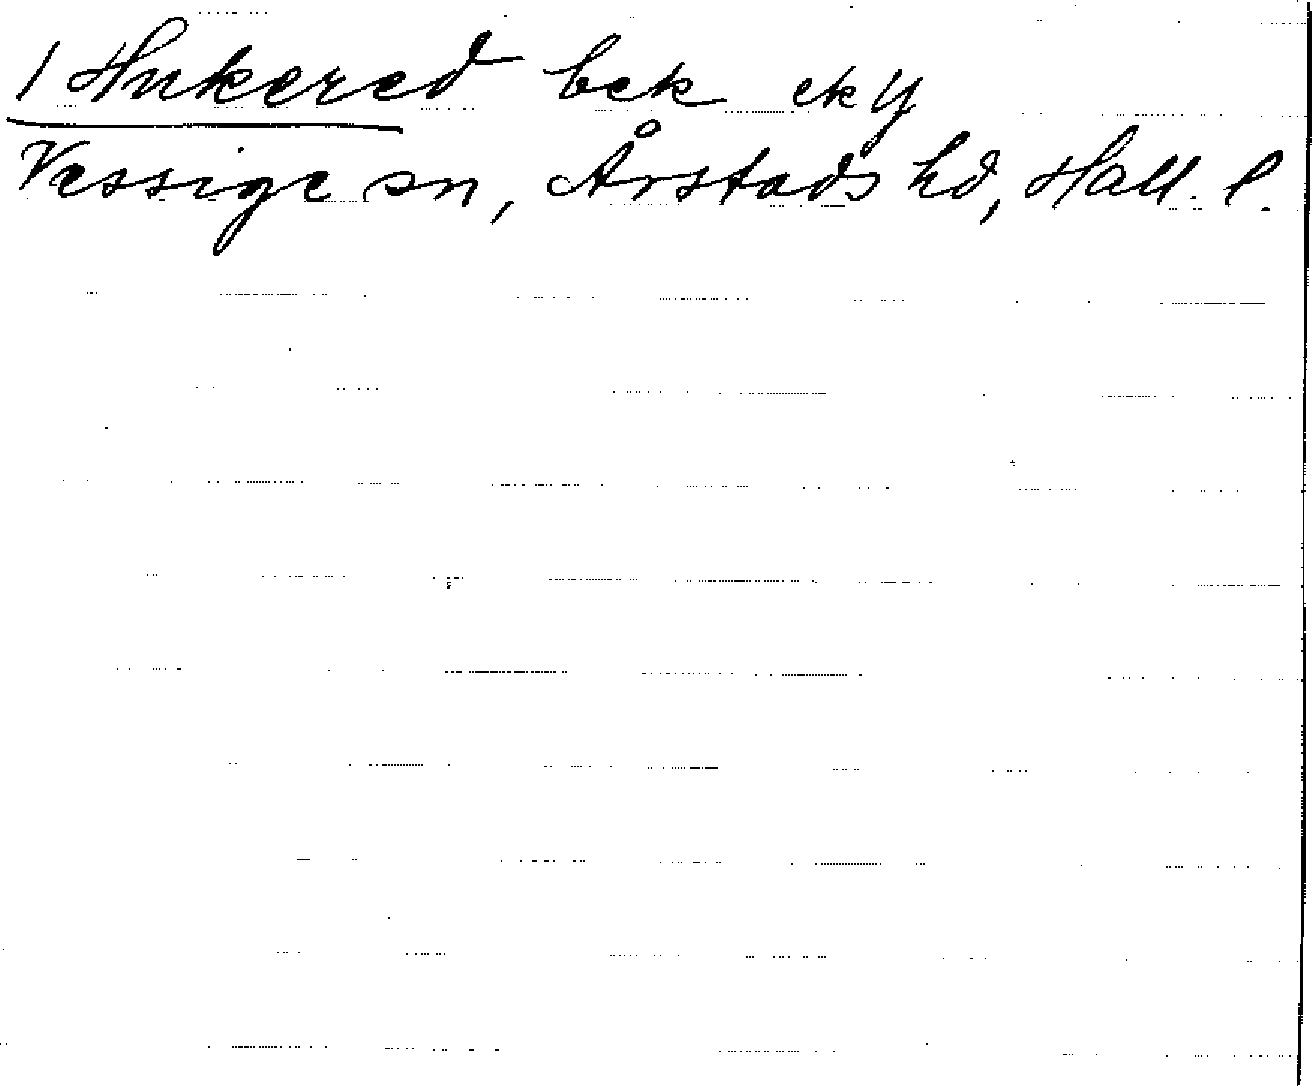 1 Hukered bek eky
Vessige sn, Årstads hd, Hall. l.